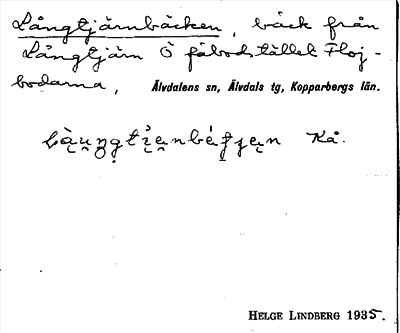 Långtjärnbäcken, bäck från
Långtjärn Ö fäbodstället Floj-
bodarna, Älvdalens sn, Älvdals tg, Kopparbergs län.
Kå.
HELGE LINDBERG 1935.